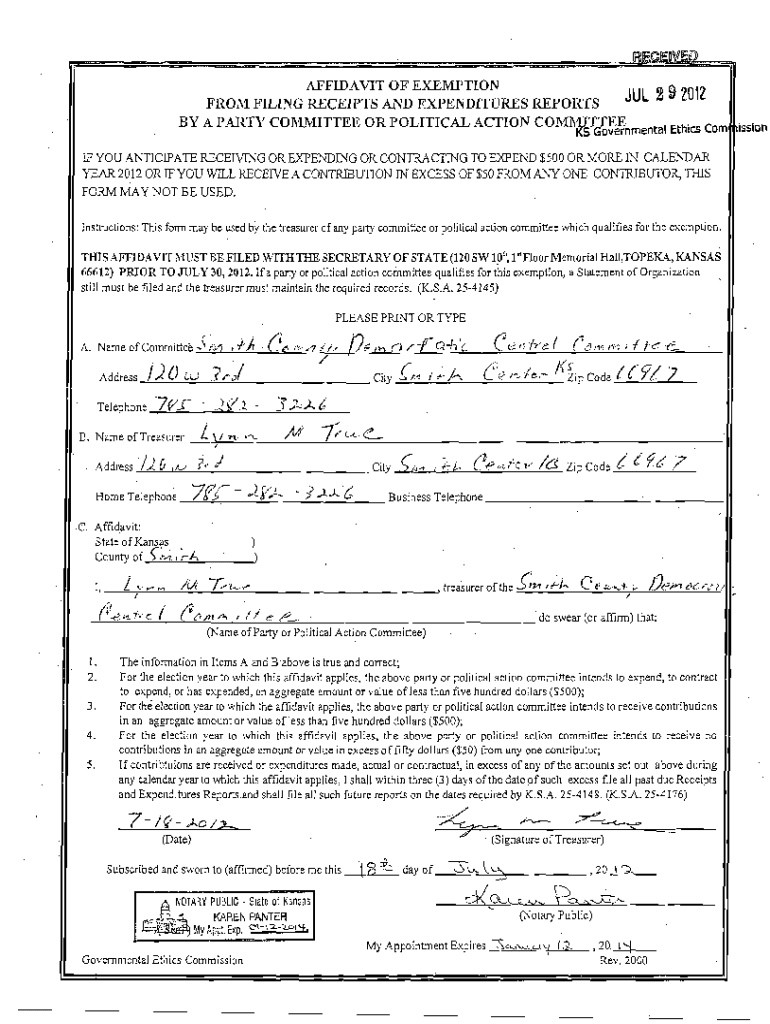 RECEIVED
AFFIDAVIT OF EXEMPTION
FROM FILING RECEIPTS AND EXPENDITURES REPORTS
JUL 29 2012
BY A PARTY COMMITTEE OR POLITICAL ACTION COMMITTEE
KS Governmental Ethics Commission
IF YOU ANTICIPATE RECEIVING OR EXPENDING OR CONTRACTING TO EXPEND $500 OR MORE IN CALENDAR
YEAR 2012 OR IF YOU WILL RECEIVE A CONTRIBUTION IN EXCESS OF $50 FROM ANY ONE CONTRIBUTOR, THIS
FORM MAY NOT BE USED.
Instructions: This form may be used by the treasurer of any party committee or political action committee which qualifies for the exemption.
THIS AFFIDAVIT MUST BE FILED WITH THE SECRETARY OF STATE (120 SW 10th, 1st Floor Memorial Hall, TOPEKA, KANSAS
66612) PRIOR TO JULY 30, 2012. If a party or political action committee qualifies for this exemption, a Statement of Organization
still must be filed and the treasurer must maintain the required records. (K.S.A. 25-4145)
PLEASE PRINT OR TYPE
A. Name of Committee Smith County Democratic Central Committee
Address 120 W 3rd City Smith Center KS Zip Code 66967
Telephone 785-282-3226
B. Name of Treasurer Lynn M True
Address 120 W 3rd City Smith Center KS Zip Code 66967
Home Telephone 785-282-3226 Business Telephone
C. Affidavit:
State of Kansas )
County of Smith )
I, Lynn M True, treasurer of the Smith County Democra
Central Committee do swear (or affirm) that:
(Name of Party or Political Action Committee)
1. The information in Items A and B above is true and correct;
2. For the election year to which this affidavit applies, the above party or political action committee intends to expend, to contract
to expend, or has expended, an aggregate amount or value of less than five hundred dollars ($500);
3. For the election year to which the affidavit applies, the above party or political action committee intends to receive contributions
in an aggregate amount or value of less than five hundred dollars ($500);
4. For the election year to which this affidavit applies, the above party or political action committee intends to receive no
contributions in an aggregate amount or value in excess of fifty dollars ($50) from any one contributor;
5. If contributions are received or expenditures made, actual or contractual, in excess of any of the amounts set out above during
any calendar year to which this affidavit applies, I shall within three (3) days of the date of such excess file all past due Receipts
and Expenditures Reports and shall file all such future reports on the dates required by K.S.A. 25-4148. (K.S.A. 25-4176)
7-18-2012 Lynn M True
(Date) (Signature of Treasurer)
Subscribed and sworn to (affirmed) before me this 18th day of July, 2012
Karen Panter
(Notary Public)
NOTARY PUBLIC - State of Kansas
KAREN PANTER
My Appt. Exp. 01-12-2014
My Appointment Expires January 12, 2014
Governmental Ethics Commission Rev. 2000